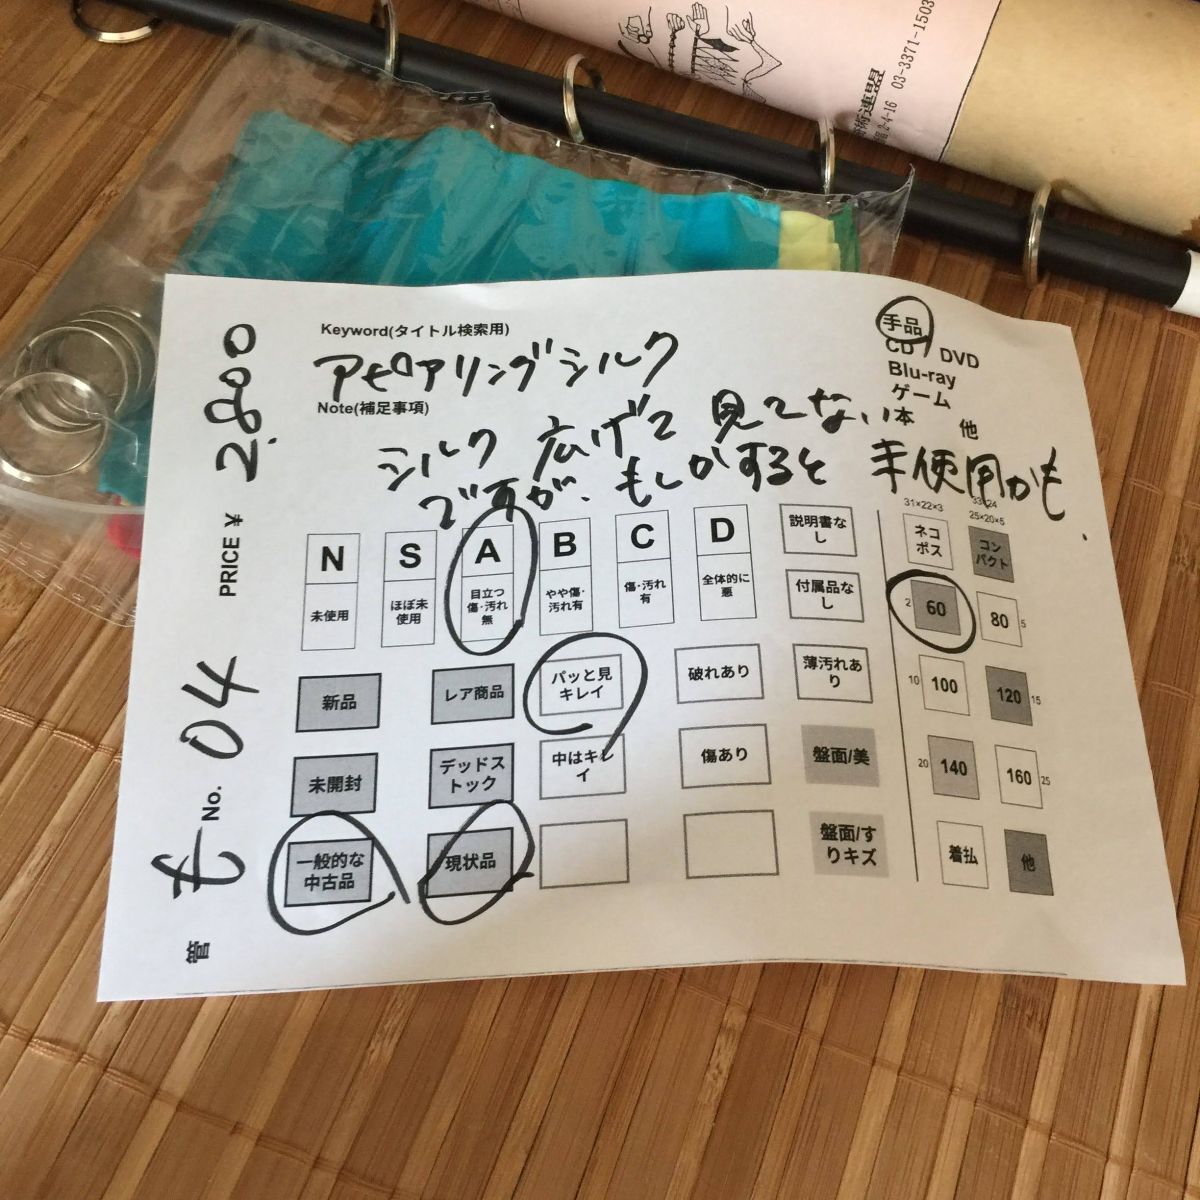 術連盟
2-4-16 03-3371-1503
Keyword(タイトル検索用)
アピアリングシルク
Note(補足事項)
シルク 広げて 見てない
ですが、もしかすると 未使用かも
手品
CD / DVD
Blu-ray
ゲーム
本 他
PRICE ¥ 2.800
管 t No. 04
N 未使用
S ほぼ未使用
A 目立つ傷・汚れ無
B やや傷・汚れ有
C 傷・汚れ有
D 全体的に悪
説明書なし
付属品なし
新品
レア商品
パッと見キレイ
破れあり
薄汚れあり
未開封
デッドストック
中はキレイ
傷あり
盤面/美
一般的な中古品
現状品
盤面/すりキズ
31×22×3
25×20×5
ネコポス
コンパクト
2 60
80 5
10 100
120 15
20 140
160 25
着払
他